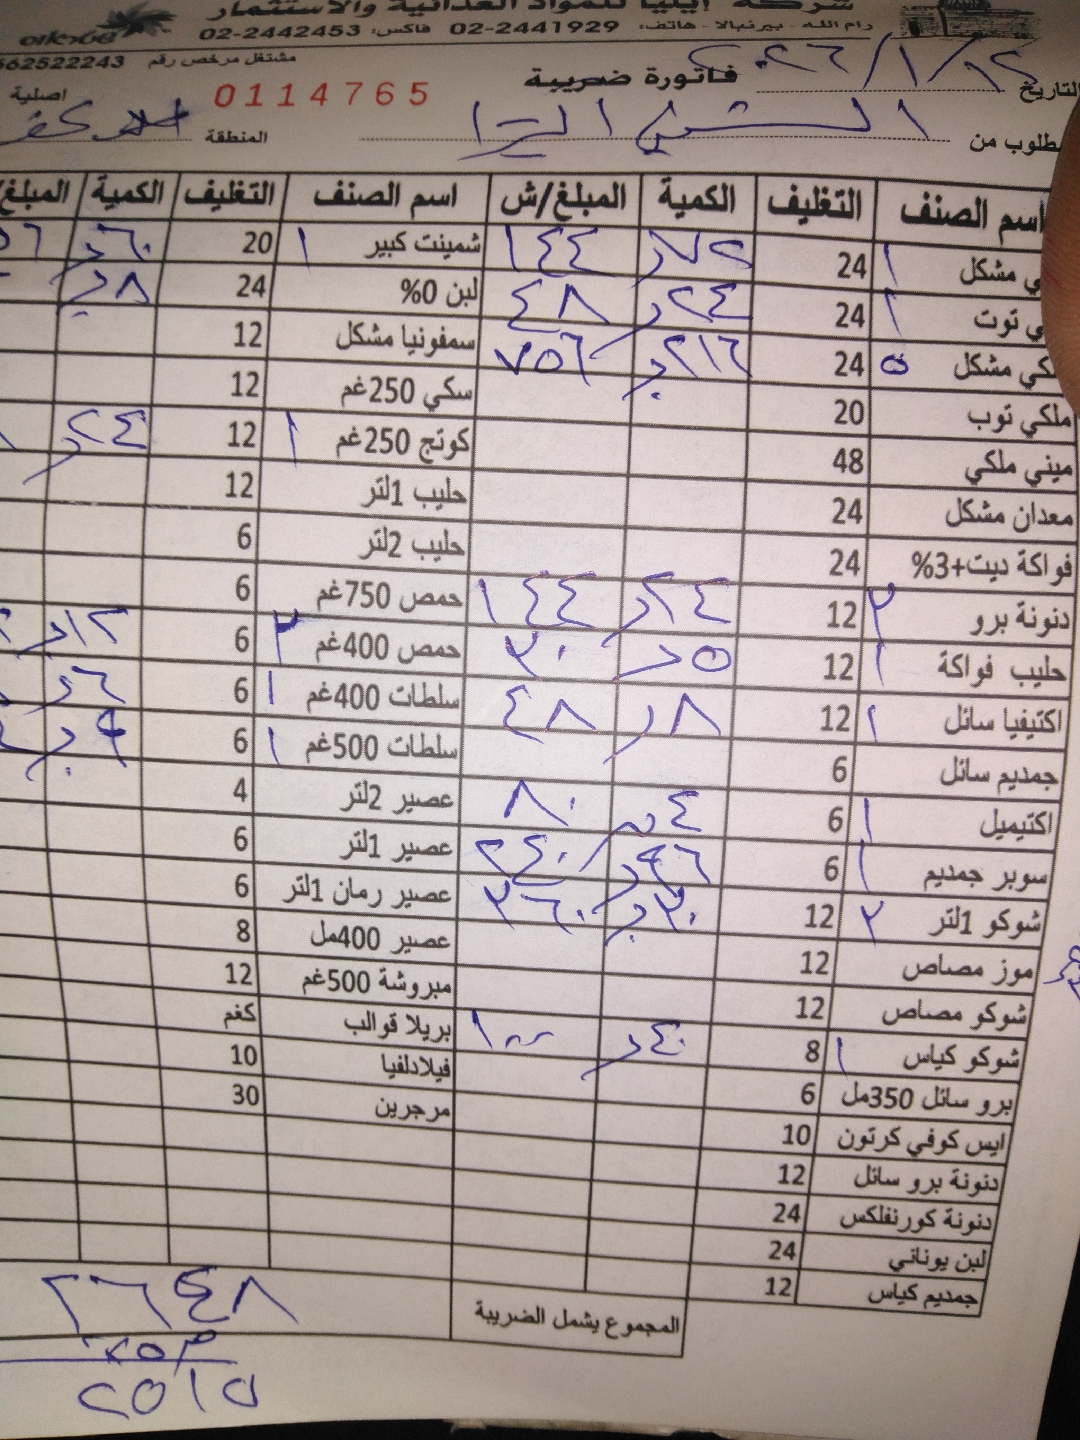 شركة إيليا للمواد الغذائية والاستثمار
رام الله - بيرنبالا - هاتف: 02-2441929 فاكس: 02-2442453
مشتغل مرخص رقم 562522243
فاتورة ضريبة
0114765
اصلية
التاريخ
مطلوب من
المنطقة
اسم الصنف التغليف الكمية المبلغ/ش اسم الصنف التغليف الكمية المبلغ/
ي مشكل ١ 24 ٧٢ ١٤٤ شمينت كبير ١ 20 ٦٠
ي توت ١ 24 ٢٤ ٤٨ لبن 0% 24 ٨
كي مشكل ٥ 24 ٢١٦ ٧٥٦ سمفونيا مشكل 12
ملكي توب 20 سكي 250غم 12
ميني ملكي 48 كوتج 250غم ١ 12 ٢٤
معدان مشكل 24 حليب 1لتر 12
فواكة ديت+3% 24 حليب 2لتر 6
دنونة برو ٢ 12 ٢٤ ١٤٤ حمص 750غم 6
حليب فواكة ١ 12 ٥ ٣٠ حمص 400غم ٢ 6 ١٢
اكتيفيا سائل ١ 12 ٨ ٤٨ سلطات 400غم ١ 6 ٦
جمديم سائل 6 سلطات 500غم ١ 6 ٩
اكتيميل ١ 6 ٤ ٨٠ عصير 2لتر 4
سوبر جمديم ١ 6 ٩٦ ٢٤٠ عصير 1لتر 6
شوكو 1لتر ٢ 12 ٣٠ ٣٦٠ عصير رمان 1لتر 6
موز مصاص 12 عصير 400مل 8
شوكو مصاص 12 مبروشة 500غم 12
شوكو كياس ١ 8 ٤٠ ١٠٠ بريلا قوالب كغم
برو سائل 350مل 6 فيلادلفيا 10
ايس كوفي كرتون 10 مرجرين 30
دنونة برو سائل 12
دنونة كورنفلكس 24
لبن يوناني 24
جمديم كياس 12
المجموع يشمل الضريبة ٢٦٤٨